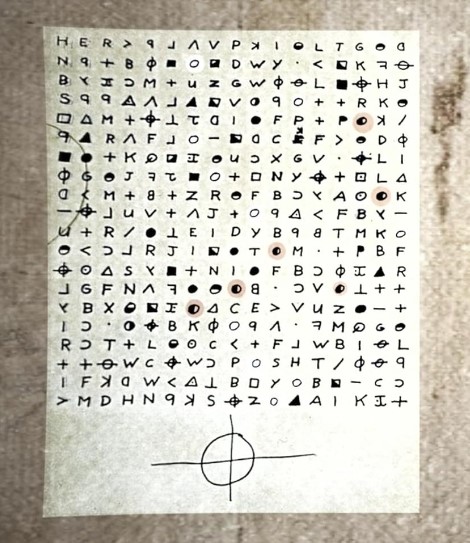 H E R > ꟼ ⅃ Λ V P ꓘ I ◒ L T G ◒ ᗡ
N 9 + B ϕ ■ O ◪ D W Y · < ◪ K ꟻ ⊖
B Y I Ɔ M + U Z G W ϕ ⊖ L ■ ⌖ H J
S 9 9 △ Λ ⅃ ◭ ◪ V ◑ 9 O + + R K ◒
□ △ M + ⌖ ⊥ τ ᗡ I ● F P + P ◐ ꓘ /
9 ▲ R Λ F ⅃ O − ◪ ᗡ C F > ◒ D ϕ
■ ● + K Ø ◨ I ◒ U Ɔ X G V · ⌖ L I
ϕ G ◒ J ꟻ τ ■ O + □ N Y ⌖ + ⊡ L △
ᗡ < M + 8 + Z R ◒ F B Ɔ Y A O ◐ K
− ⌖ ⅃ U V + Λ J + O 9 △ < F B Y −
U + R / ● ⊥ E I D Y B 9 8 T M K O
◒ < Ɔ ⅃ R J I ■ ● T ◐ M · + P B F
⌖ ⊙ △ S Y ■ + N I ● F B Ɔ ϕ I ▲ R
⅃ G F N Λ ꟻ ● ◒ ◐ B · Ɔ V ◐ ⊥ + +
Y B X ◒ ◪ I ◐ △ C E > V U Z ● − +
I Ɔ · ◒ ⌖ B K ϕ O 9 Λ · ꟻ M Q G ◒
R Ɔ T + L ⊙ O C < + F ⅃ W B I ⊖ L
+ + ⊖ W C ⌖ W Ɔ P O S H T / ϕ ⊖ 9
I F ꓘ ᗡ W < △ ⊥ B □ Y O B ◪ − C Ɔ
> M D H N 9 ꓘ S ⌖ Z O ▲ A I K I +